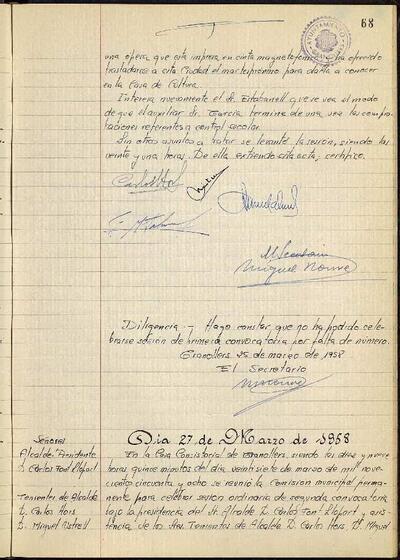 68
una opera que está impresa en cinta magnetofónica ha ofrecido
trasladarse a esta Ciudad el martes próximo para darla a conocer
en la Casa de Cultura.
Interesa nuevamente el Sr. Estabanell que se vea el modo
de que el auxiliar Sr. García termine de una vez las compro-
baciones referentes a control escolar.
Sin otros asuntos a tratar se levantó la sesión, siendo las
veinte y una horas. De ella extiendo esta acta, certifico.
Diligencia.- Hago constar que no ha podido cele-
brarse sesión de primera convocatoria por falta de número.
Granollers, 25 de marzo de 1958
El Secretario
Señores
Alcalde Presidente
D. Carlos Font Llopart
Tenientes de Alcalde
D. Carlos Hors
D. Miguel
Día 27 de Marzo de 1958
En la Casa Consistorial de Granollers, siendo las diez y nueve
horas quince minutos del día veintisiete de marzo de mil nove-
cientos cincuenta y ocho se reunió la Comisión municipal perma-
nente para celebrar sesión ordinaria de segunda convocatoria
bajo la presidencia del Sr. Alcalde D. Carlos Font Llopart, y asis-
tencia de los Sres. Tenientes de Alcalde D. Carlos Hors, D. Miguel